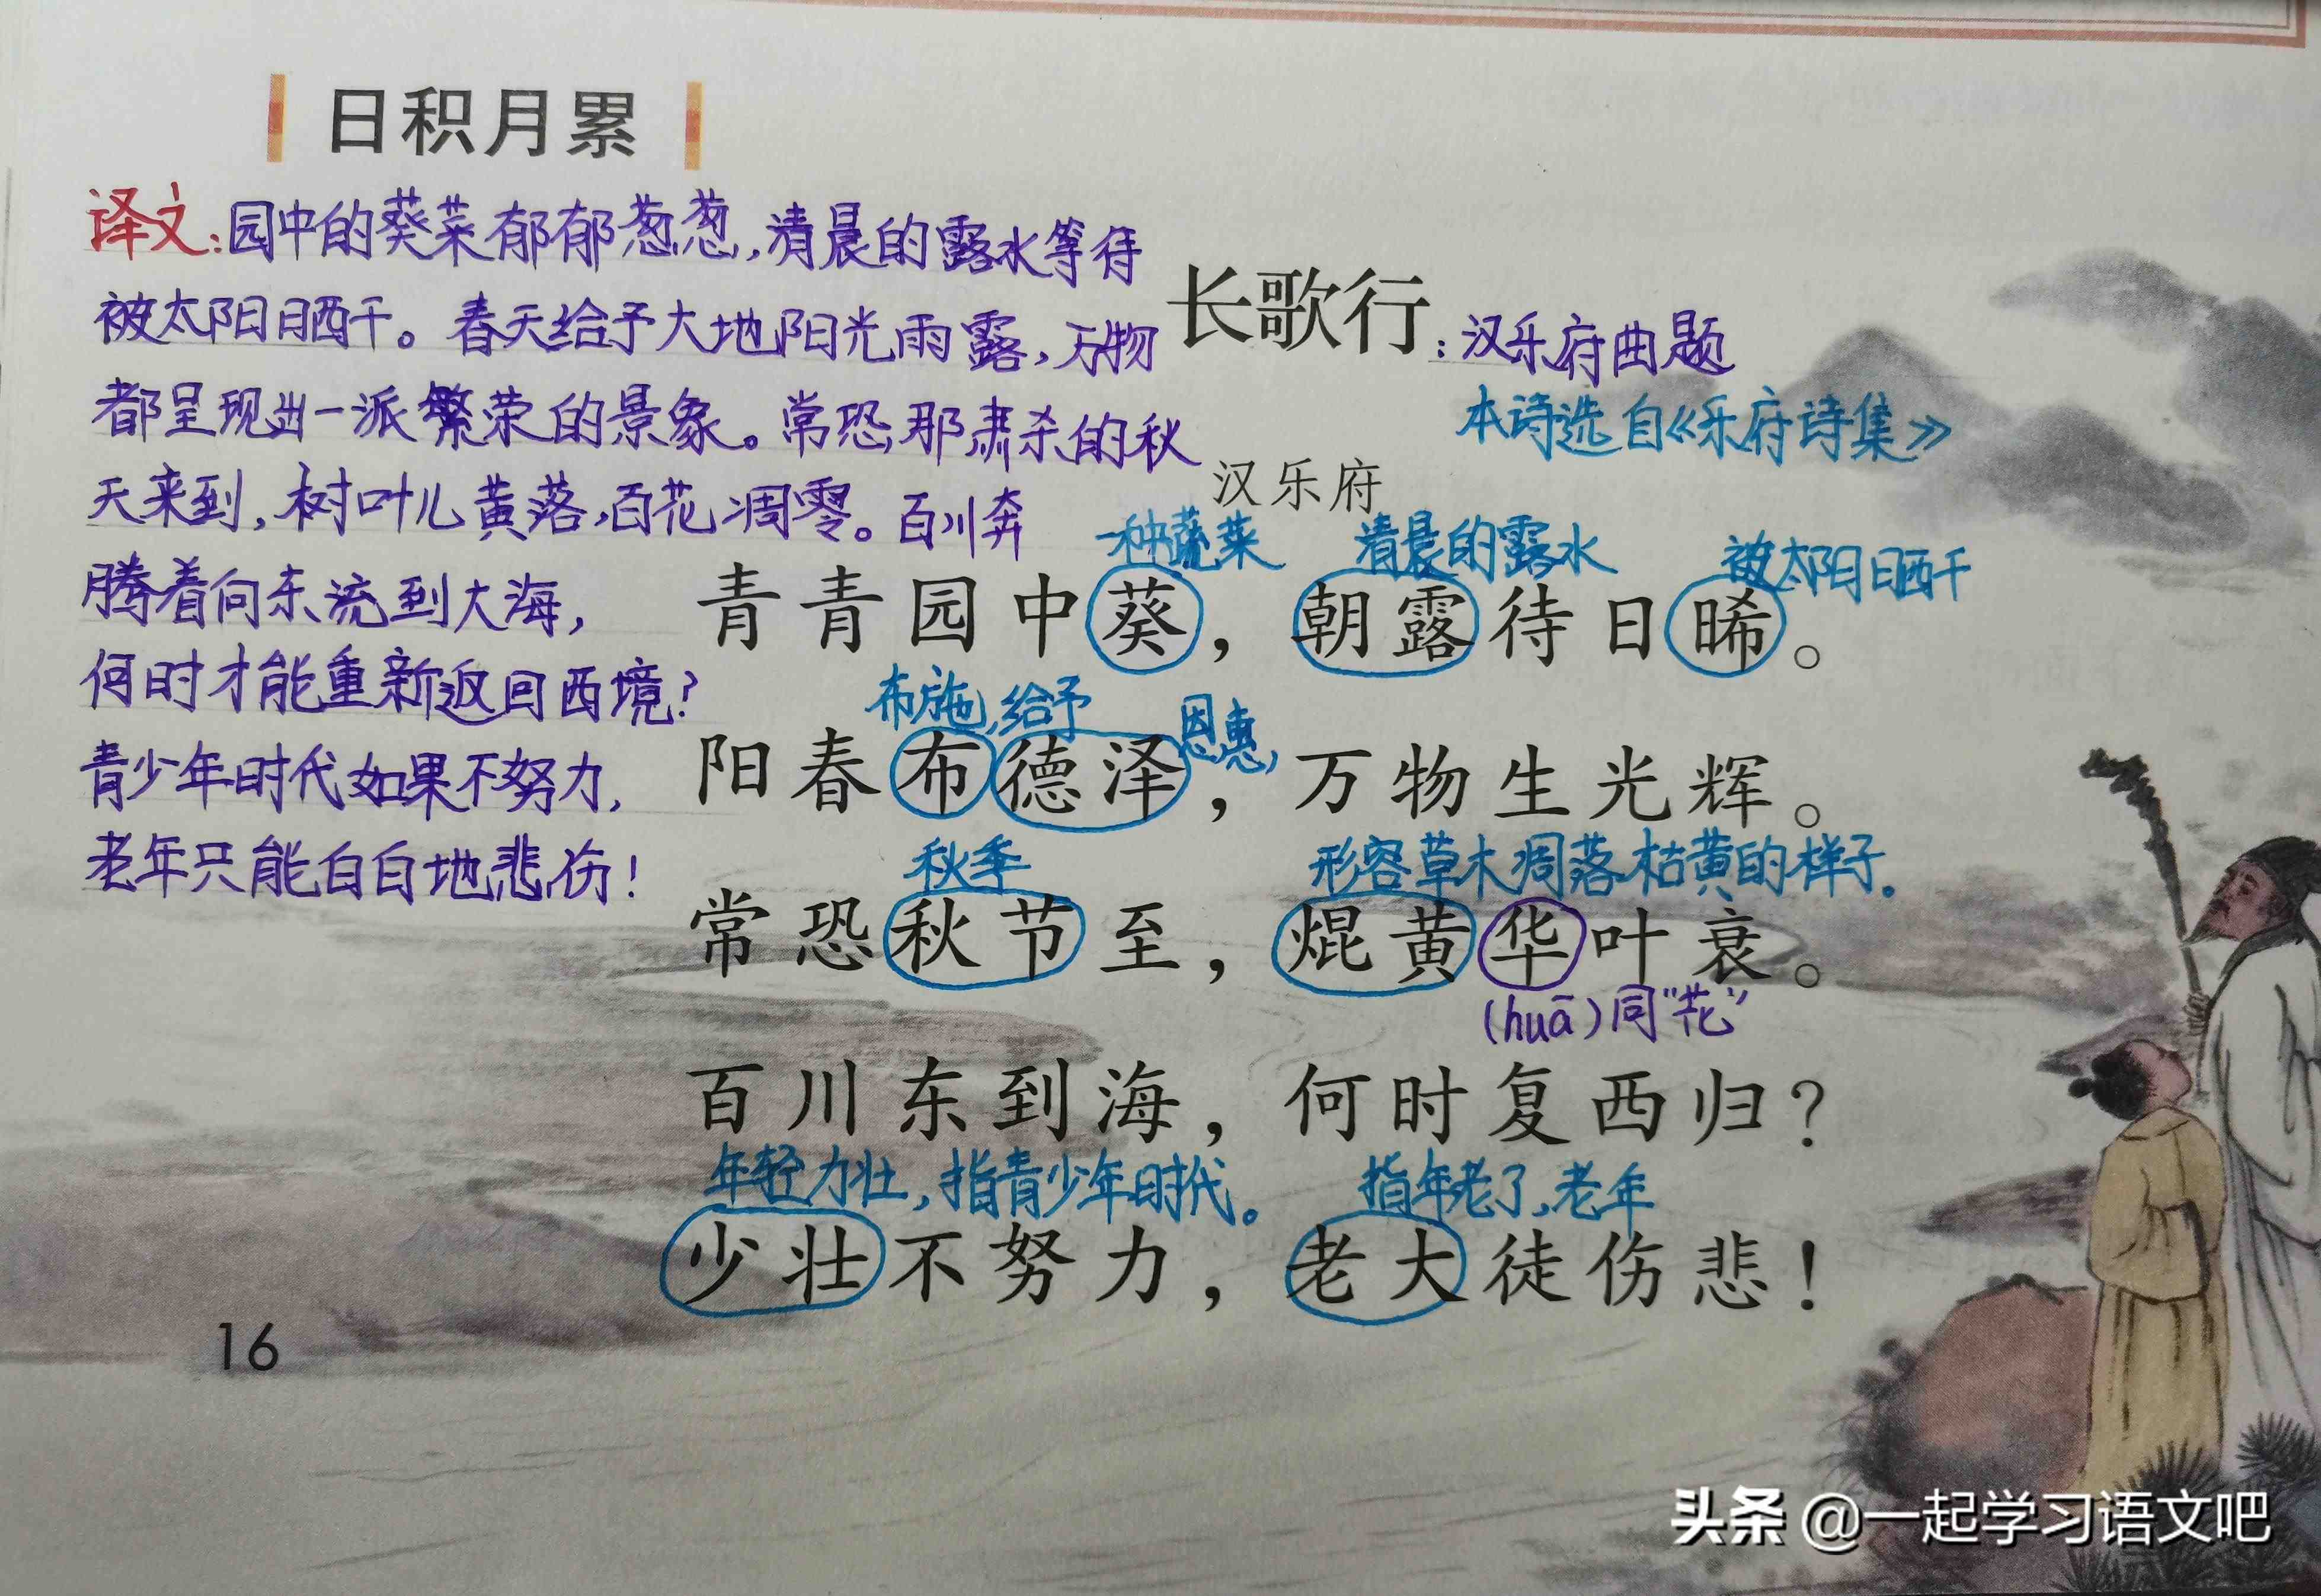 日积月累
译文:园中的葵菜郁郁葱葱,清晨的露水等待
被太阳晒干。春天给予大地阳光雨露,万物
都呈现出一派繁荣的景象。常恐那肃杀的秋
天来到,树叶儿黄落,百花凋零。百川奔
腾着向东流到大海,
何时才能重新返回西境?
青少年时代如果不努力,
老年只能白白地悲伤!
长歌行:汉乐府曲题
本诗选自《乐府诗集》
汉乐府
一种蔬菜 清晨的露水 被太阳晒干
青青园中葵,朝露待日晞。
布施,给予 恩惠,
阳春布德泽,万物生光辉。
秋季 形容草木凋落枯黄的样子。
常恐秋节至,焜黄华叶衰。
(huā)同“花”
百川东到海,何时复西归?
年轻力壮,指青少年时代。 指年老了,老年
少壮不努力,老大徒伤悲!
16
头条 @一起学习语文吧